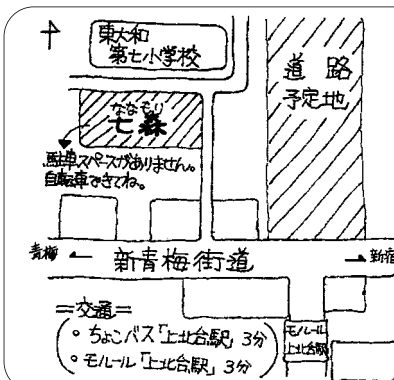 東大和
第七小学校
道路
予定地
ななもり
七森
駐車スペースがありません。
自転車できてね。
青梅 ← 新青梅街道 → 新宿
=交通=
◦ ちょこバス「上北台駅」3分
◦ モノレール「上北台駅」3分
モノレール
上北台駅